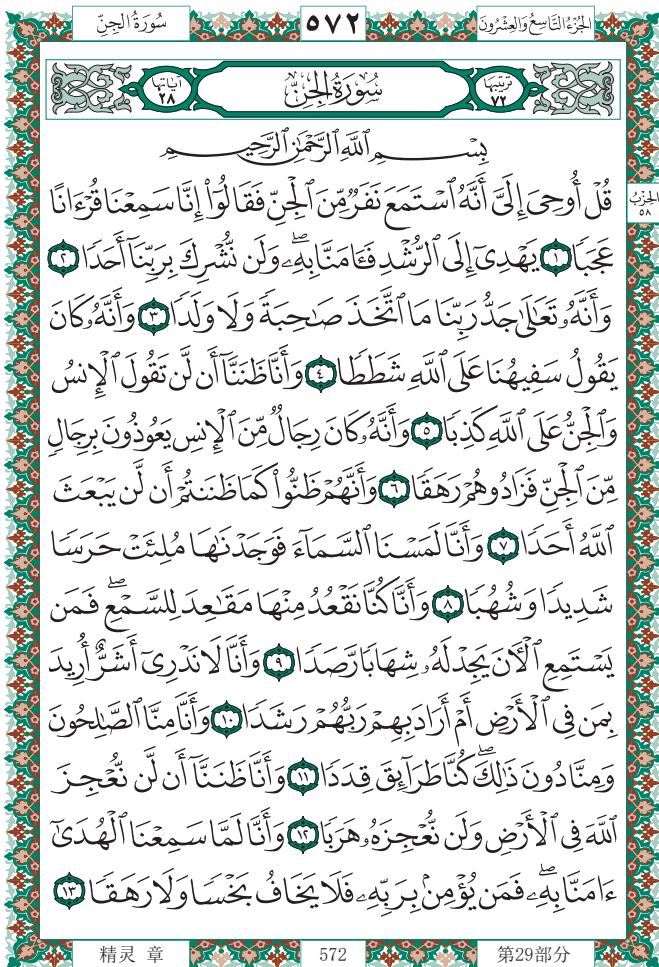 الجُزْءُ التَّاسِعُ وَالعِشْرُونَ ٥٧٢ سُورَةُ الجِنِّ
تَرْتِيبُهَا ٧٢ سُورَةُ الجِنِّ آيَاتُهَا ٢٨
بِسْمِ ٱللَّهِ ٱلرَّحْمَٰنِ ٱلرَّحِيمِ
قُلْ أُوحِىَ إِلَىَّ أَنَّهُ ٱسْتَمَعَ نَفَرٌ مِّنَ ٱلْجِنِّ فَقَالُوٓا۟ إِنَّا سَمِعْنَا قُرْءَانًا
الحِزْبُ ٥٨
عَجَبًا ١ يَهْدِىٓ إِلَى ٱلرُّشْدِ فَـَٔامَنَّا بِهِۦ ۖ وَلَن نُّشْرِكَ بِرَبِّنَآ أَحَدًا ٢
وَأَنَّهُۥ تَعَٰلَىٰ جَدُّ رَبِّنَا مَا ٱتَّخَذَ صَٰحِبَةً وَلَا وَلَدًا ٣ وَأَنَّهُۥ كَانَ
يَقُولُ سَفِيهُنَا عَلَى ٱللَّهِ شَطَطًا ٤ وَأَنَّا ظَنَنَّآ أَن لَّن تَقُولَ ٱلْإِنسُ
وَٱلْجِنُّ عَلَى ٱللَّهِ كَذِبًا ٥ وَأَنَّهُۥ كَانَ رِجَالٌ مِّنَ ٱلْإِنسِ يَعُوذُونَ بِرِجَالٍ
مِّنَ ٱلْجِنِّ فَزَادُوهُمْ رَهَقًا ٦ وَأَنَّهُمْ ظَنُّوا۟ كَمَا ظَنَنتُمْ أَن لَّن يَبْعَثَ
ٱللَّهُ أَحَدًا ٧ وَأَنَّا لَمَسْنَا ٱلسَّمَآءَ فَوَجَدْنَٰهَا مُلِئَتْ حَرَسًا
شَدِيدًا وَشُهُبًا ٨ وَأَنَّا كُنَّا نَقْعُدُ مِنْهَا مَقَٰعِدَ لِلسَّمْعِ ۖ فَمَن
يَسْتَمِعِ ٱلْـَٔانَ يَجِدْ لَهُۥ شِهَابًا رَّصَدًا ٩ وَأَنَّا لَا نَدْرِىٓ أَشَرٌّ أُرِيدَ
بِمَن فِى ٱلْأَرْضِ أَمْ أَرَادَ بِهِمْ رَبُّهُمْ رَشَدًا ١٠ وَأَنَّا مِنَّا ٱلصَّٰلِحُونَ
وَمِنَّا دُونَ ذَٰلِكَ ۖ كُنَّا طَرَآئِقَ قِدَدًا ١١ وَأَنَّا ظَنَنَّآ أَن لَّن نُّعْجِزَ
ٱللَّهَ فِى ٱلْأَرْضِ وَلَن نُّعْجِزَهُۥ هَرَبًا ١٢ وَأَنَّا لَمَّا سَمِعْنَا ٱلْهُدَىٰٓ
ءَامَنَّا بِهِۦ ۖ فَمَن يُؤْمِنۢ بِرَبِّهِۦ فَلَا يَخَافُ بَخْسًا وَلَا رَهَقًا ١٣
精灵 章 572 第29部分